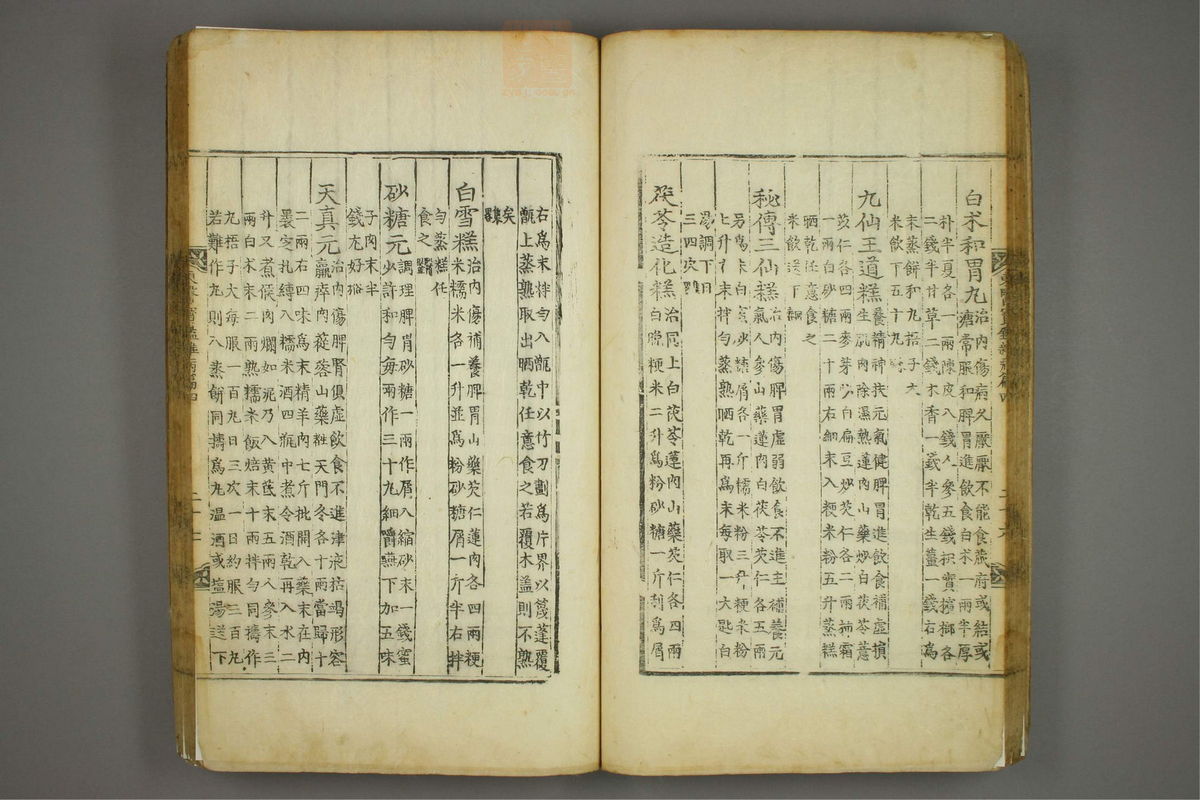 白朮和胃丸治內傷病久厭厭不能食藏府或結或
溏常服和脾胃進飲食白朮一兩半厚
朴半夏各一兩陳皮八錢人參五錢枳實檳榔各
二錢半甘草二錢木香一錢半乾生薑一錢右爲
末蒸餅和丸梧子大
米飲下五十丸
九仙王道糕養精神扶元氣健脾胃進飲食補虛損
生肌肉除濕熱蓮肉山藥炒白茯苓薏
苡仁各四兩麥芽炒白扁豆炒芡仁各二兩柿霜
一兩白砂糖二十兩右細末入粳米粉五升蒸糕
晒乾任意食之
米飲送下
秘傳三仙糕治內傷脾胃虛弱飲食不進主補養元
氣人參山藥蓮肉白茯苓芡仁各五兩
另爲末白蜜砂糖屑各一斤糯米粉三升粳米粉
七升右末拌勻蒸熟晒乾再爲末每取一大匙白
湯調下日
三四次
茯苓造化糕治同上白茯苓蓮肉山藥芡仁各四兩
白晚粳米二升爲粉砂糖一斤刮爲屑
右爲末拌勻入甑中以竹刀劃爲片界以篾蓬覆
甑上蒸熟取出晒乾任意食之若覆木盖則不熟
矣
白雪糕治內傷補養脾胃山藥芡仁蓮肉各四兩粳
米糯米各一升並爲粉砂糖屑一斤半右拌
勻蒸糕任
食之
砂糖元調理脾胃砂糖一兩作屑入縮砂末一錢蜜
少許和勻每兩作三十丸細嚼嚥下加五味
子肉末半
錢尤好
天真元治內傷脾腎俱虛飲食不進津液枯竭形容
羸瘁肉蓯蓉山藥粧天門冬各十兩當歸十
二兩右四味爲末精羊肉七斤批開入藥末在內
裹定扎縛入糯米酒四瓶中煮令酒乾再入水二
升又煮候肉爛如泥乃入黃芪末五兩人參末三
兩白朮末二兩熟糯米飯焙末十兩拌勻同擣作
丸梧子大每服一百丸日三次一日約服三百丸
若難作丸則入蒸餠同擣爲丸溫酒或塩湯送下